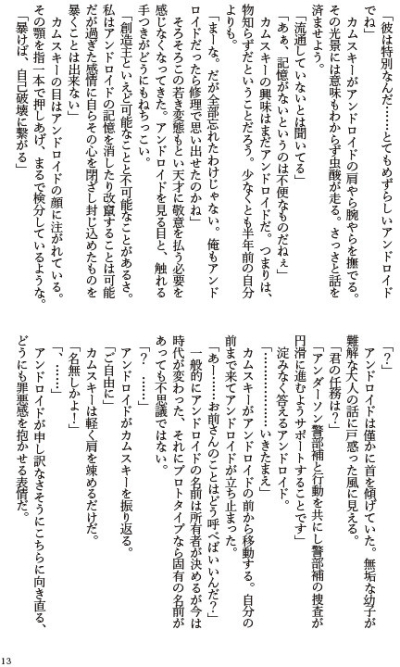 「彼は特別なんだ……とてもめずらしいアンドロイド
でね」
　カムスキーがアンドロイドの肩やら腕やらを撫でる。
その光景には意味もわからず虫酸が走る。さっさと話を
済ませよう。
「流通していないとは聞いてる」
「あぁ、記憶がないというのは不便なものだねぇ」
　カムスキーの興味はまだアンドロイドだ。つまりは、
物知らずだということだろう。少なくとも半年前の自分
よりも。
「まーな。だが全部忘れたわけじゃない。俺もアンド
ロイドだったら修理で思い出せたのかね」
　そろそろこの若き変態もとい天才に敬意を払う必要を
感じなくなってきた。アンドロイドを見る目と、触れる
手つきがどうにもねちっこい。
「創造主といえど可能なことと不可能なことがあるさ。
私はアンドロイドの記憶を消したり改竄することは可能
だが過ぎた感情に自らその心を閉ざし封じ込めたものを
暴くことは出来ない」
　カムスキーの目はアンドロイドの顔に注がれている。
その顎を指一本で押しあげ、まるで検分しているような。
「暴けば、自己破壊に繋がる」
「？」
　アンドロイドは僅かに首を傾げていた。無垢な幼子が
難解な大人の話に戸惑った風に見える。
「君の任務は？」
「アンダーソン警部補と行動を共にし警部補の捜査が
円滑に進むようサポートすることです」
　淀みなく答えるアンドロイド。
「……………………いきたまえ」
　カムスキーがアンドロイドの前から移動する。自分の
前まで来てアンドロイドが立ち止まった。
「あ……お前さんのことはどう呼べばいいんだ？」
　一般的にアンドロイドの名前は所有者が決めるが今は
時代が変わった、それにプロトタイプなら固有の名前が
あっても不思議ではない。
「？　……」
　アンドロイドがカムスキーを振り返る。
「ご自由に」
　カムスキーは軽く肩を竦めるだけだ。
「名無しかよー」
「、……」
　アンドロイドが申し訳なさそうにこちらに向き直る、
どうにも罪悪感を抱かせる表情だ。
13